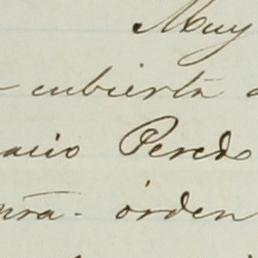 Muy
cubierta
acio Peredo
nra. órden